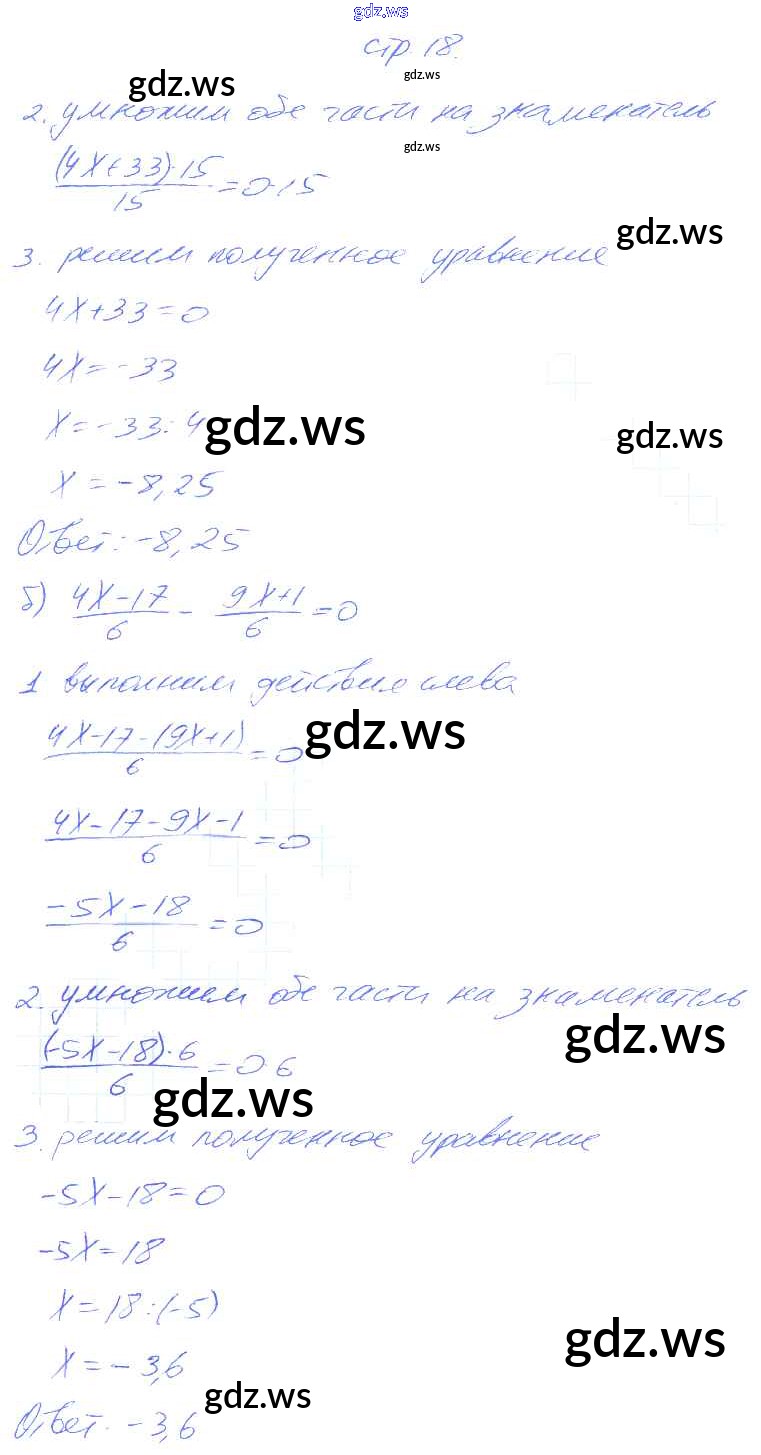 gdz.ws
стр. 18.
gdz.ws
gdz.ws
2. умножим обе части на знаменатель
gdz.ws
(4x+33)·15
15
=0·15
gdz.ws
3. решим полученное уравнение
4x+33=0
4x=-33
x=-33:4
gdz.ws
gdz.ws
x=-8,25
Ответ: -8,25
б) 4x-17
6
- 9x+1
6
=0
1 выполним действие слева
4x-17-(9x+1)
6
=0
gdz.ws
4x-17-9x-1
6
=0
-5x-18
6
=0
2. умножим обе части на знаменатель
gdz.ws
(-5x-18)·6
6
=0·6
gdz.ws
3. решим полученное уравнение
-5x-18=0
-5x=18
x=18:(-5)
gdz.ws
x=-3,6
gdz.ws
Ответ. -3,6